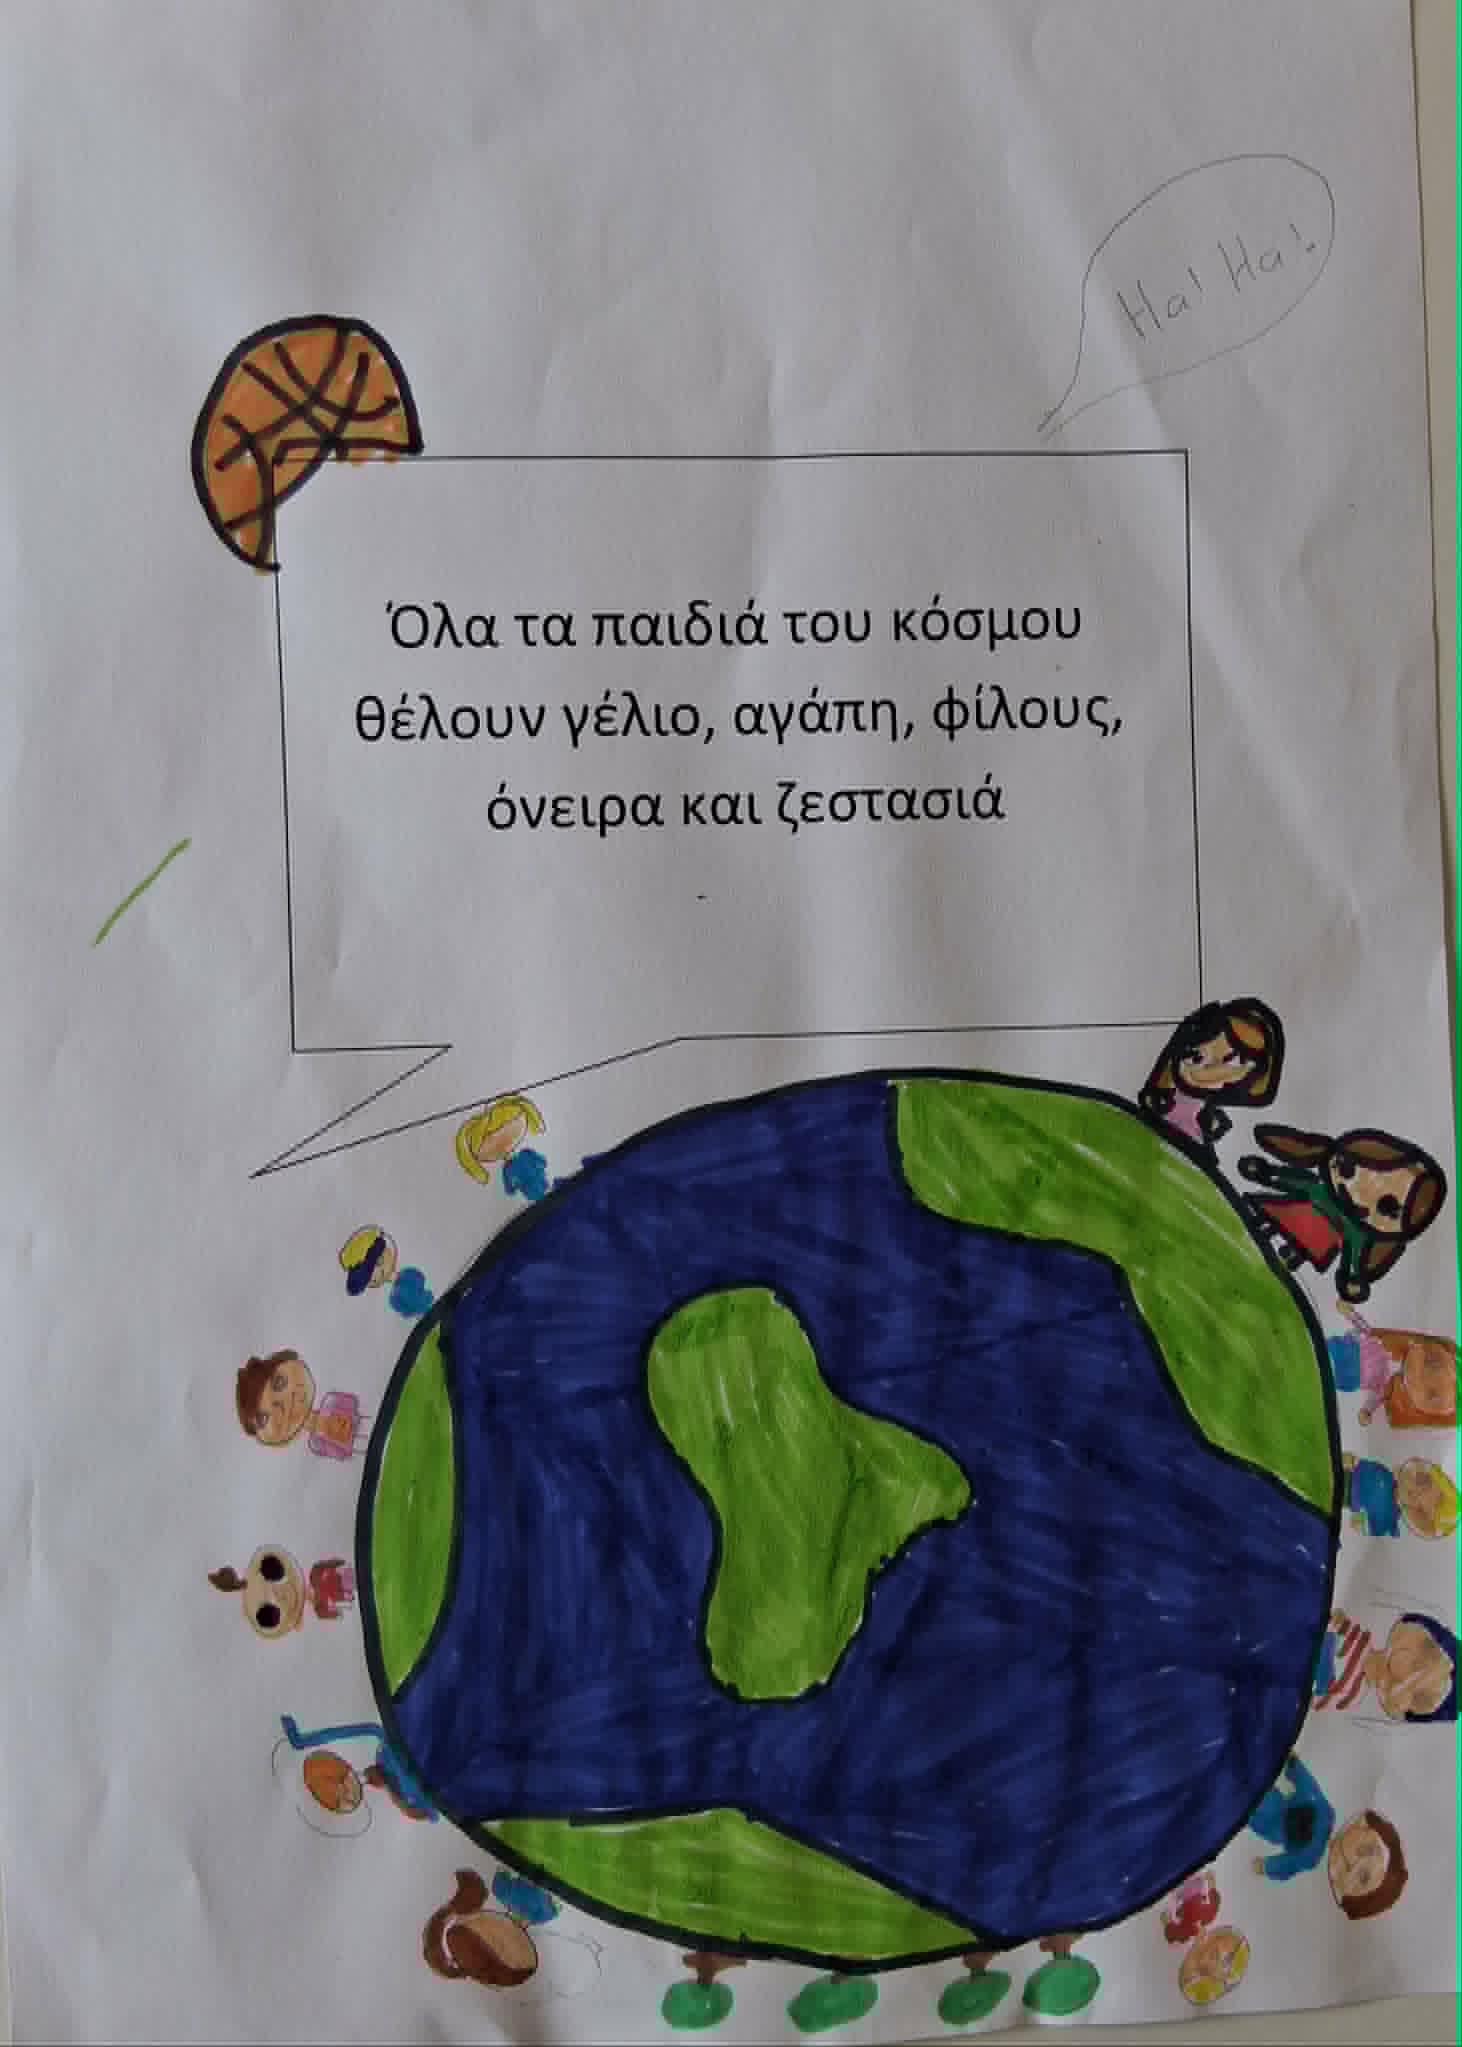 Ha! Ha!
Όλα τα παιδιά του κόσμου
θέλουν γέλιο, αγάπη, φίλους,
όνειρα και ζεστασιά